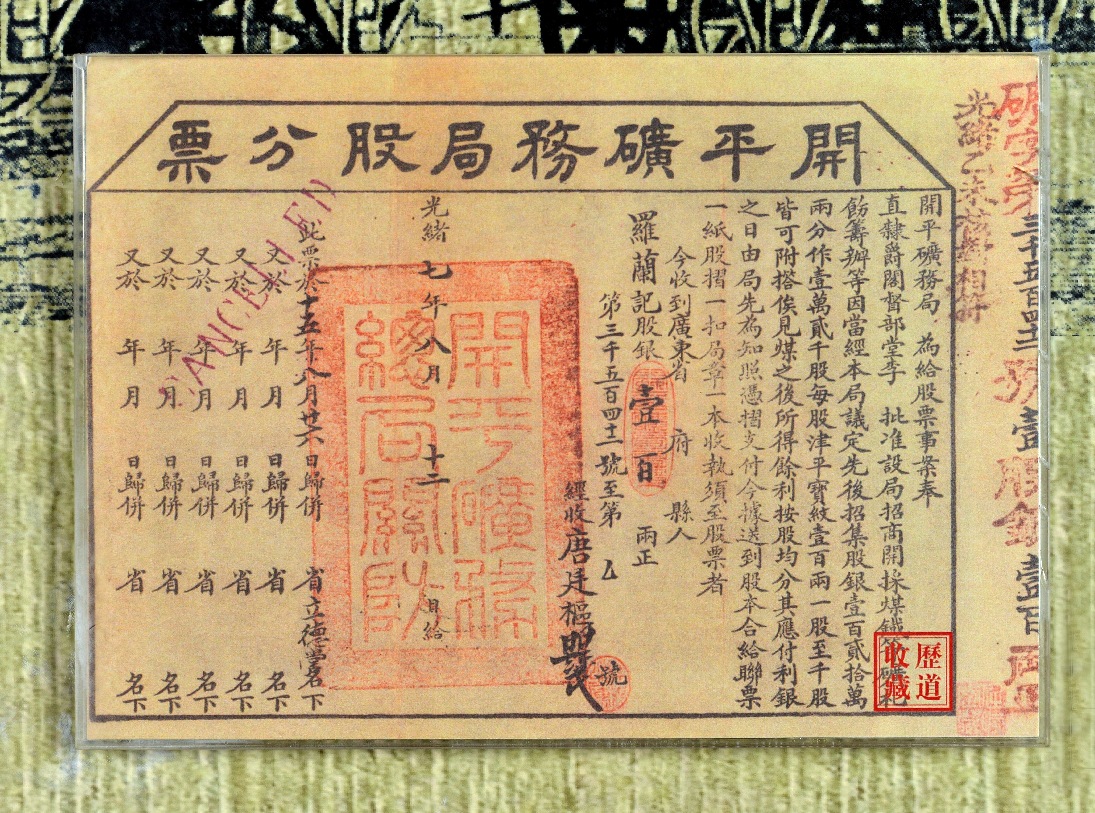 開平礦務局股分票
開平礦務局　為給股票事案奉
直隸爵閣督部堂李　批准設局招商開採煤鐵等礦札
飭籌辦等因當經本局議定先後招集股銀壹百貳拾萬
兩分作壹萬貳千股每股津平寶紋壹百兩一股至千股
皆可附搭俟見煤之後所得餘利按股均分其應付利銀
之日由局先為知照憑摺支付今據送到股本合給聯票
一紙股摺一扣局章一本收執須至股票者
今收到廣東省　府　縣人
羅蘭記股銀　壹百　兩正
第三千五百四十一號至第　號
經收唐廷樞
光緒七年八月十三日給
此票於十五年八月廿六日歸併　省立德堂名下
又於　年　月　日歸併　省　名下
又於　年　月　日歸併　省　名下
又於　年　月　日歸併　省　名下
又於　年　月　日歸併　省　名下
又於　年　月　日歸併　省　名下
開平礦務
總局關防
CANCELLED
光緒乙未核對相符
號壹股銀壹百兩
歷道
收藏